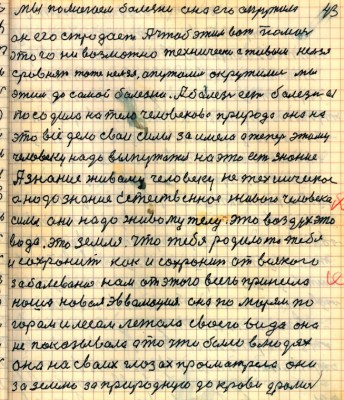 43
мы помогаем болезни она его окружила
он его страдает А чтоб этим вот помог
этого не возможно технически с живым нельзя
сровнят тоте нельзя, опутали окружили мы
этим до самой болезни. А болезн ест болезн ея
посадила на тело человеково природа она на
это всё дело сваи силы заимела а теперь этому
человеку надо выпутатся на это ест знание
А знание живому человеку не техническое
а надо знание Естественное живого человека
силы они надо живому телу. это воздух это
вода, это земля. что тебя родило то тебя
и сохранит как и сохранит от всякого
заболевания нам от этого весь принесла
наша новая эвволюция она по морям по
горам и лесам летала своего вида она
не показывала а то эти были в людях
она на сваих глозах прасматрела они
за землю за природную до крови дрались